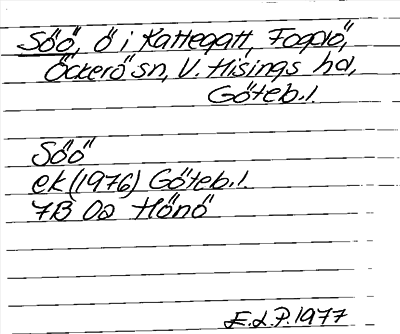 Söö, ö i Kattegatt, Fogdö,
Öckerö sn, V. Hisings hd,
Göteb.l.
Söö
ek (1976) Göteb.l.
7B 0a Hönö
E.L.P. 1977